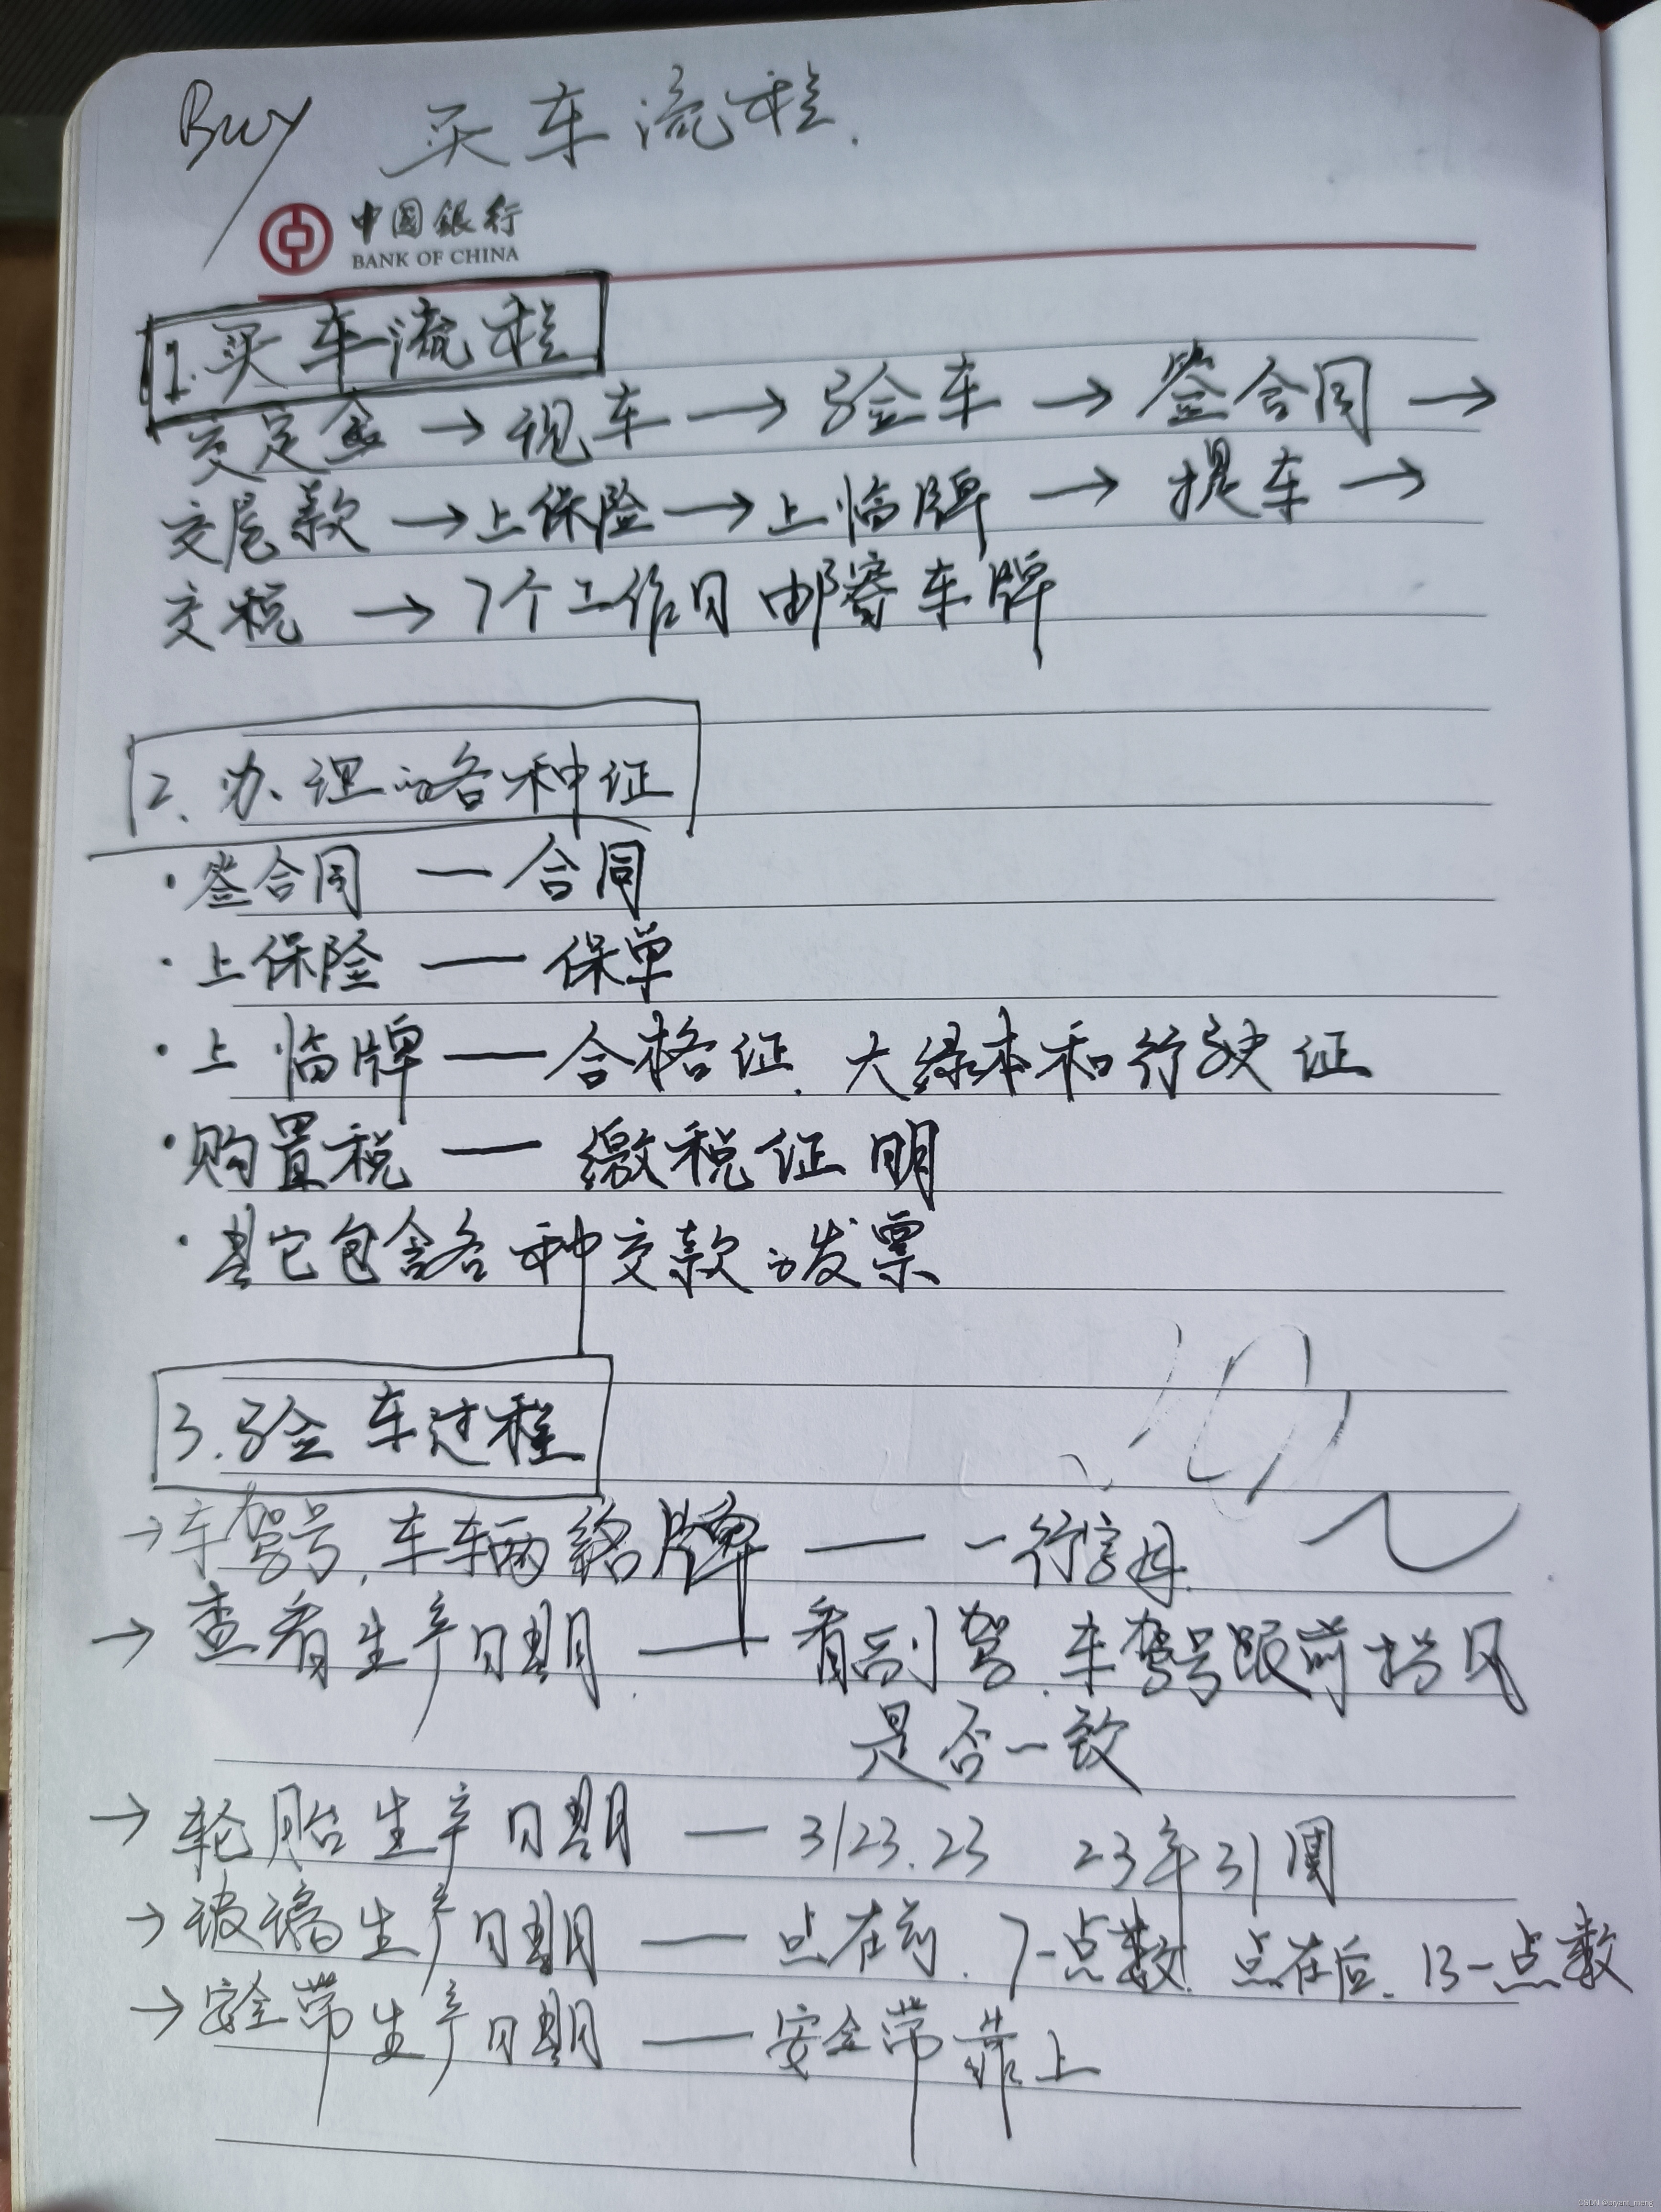 Buy 买车流程.
中国银行
BANK OF CHINA
1.买车流程
交定金→视车→验车→签合同→
交尾款→上保险→上临牌→提车→
交税→7个工作日邮寄车牌
2.办理的各种证
·签合同—合同
·上保险—保单
·上临牌—合格证.大绿本和行驶证
·购置税—缴税证明
·其它包含各种交款的发票
3.验车过程
→车驾号.车辆铭牌—一行字母.
→查看生产日期.—看副驾.车驾号跟前挡风
是否一致
→轮胎生产日期—3123.23 23年31周
→玻璃生产日期—点在前.7-点数.点在后.13-点数
→安全带生产日期—安全带靠上
CSDN @bryant_meng